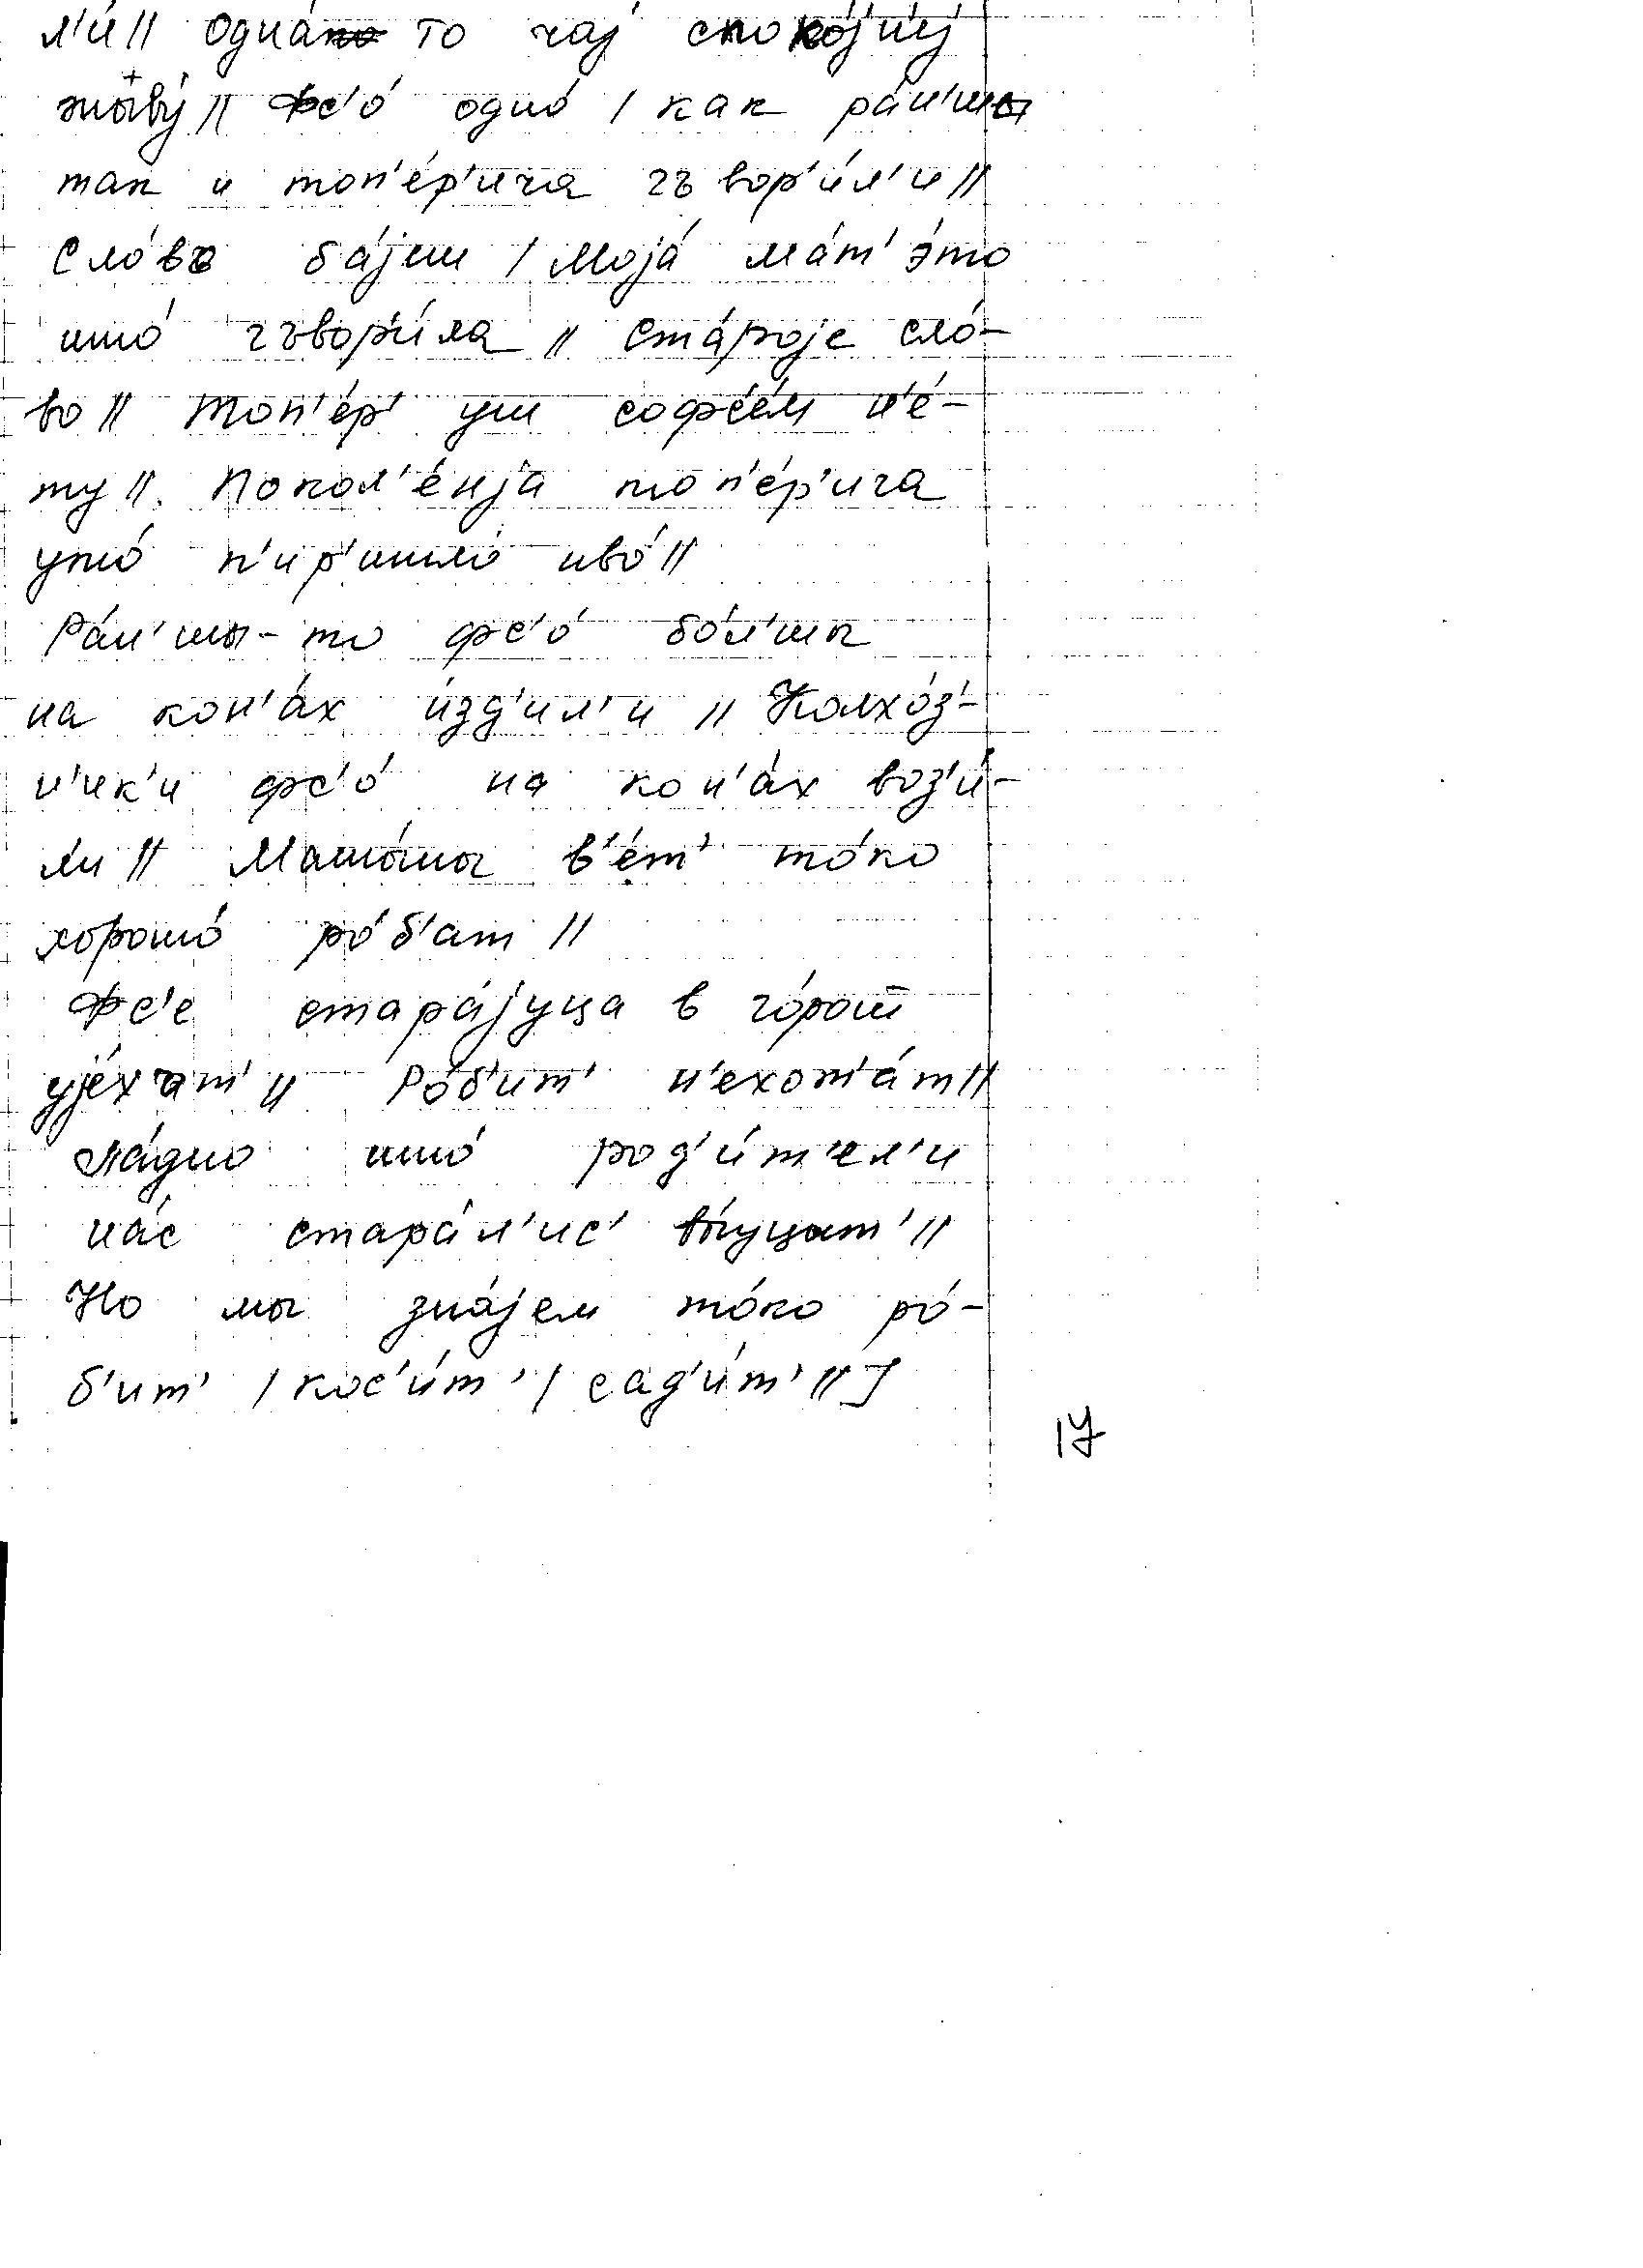 л'и́ || Одна́ то чај споко́јн'иј
жыву́ || Фс'о́ одно́ / как ра́н'шы
так и топ'е́р'ича гъвор'и́л'и ||
Сло́въ ба́јиш / Моја́ ма́т' э́то
ишо́ гъвор'и́ла || Ста́роје сло́-
во || Топ'е́р' уш софс'е́м н'е́-
ту ||. Покол'е́нја топ'е́р'ича
ужо́ п'ир'ишло́ иво́ ||
Ра́н'шы-то фс'о́ бо́л'шы
на кон'а́х и́зд'ил'и || Колхо́з'-
н'ик'и фс'о́ на кон'а́х воз'и́-
л'и || Машы́ны в'е́т' то́ко
хорошо́ ро́б'ат ||
Фс'е стара́јуца в го́рот
ује́хат' || Ро́б'ит' н'ехот'а́т ||
Ла́дно ишо́ род'и́т'ел'и
на́с стара́л'ис' вы́уцыт' ||
Но мы зна́јем то́ко ро́-
б'ит' / кос'и́т' / сад'и́т' || ]
17